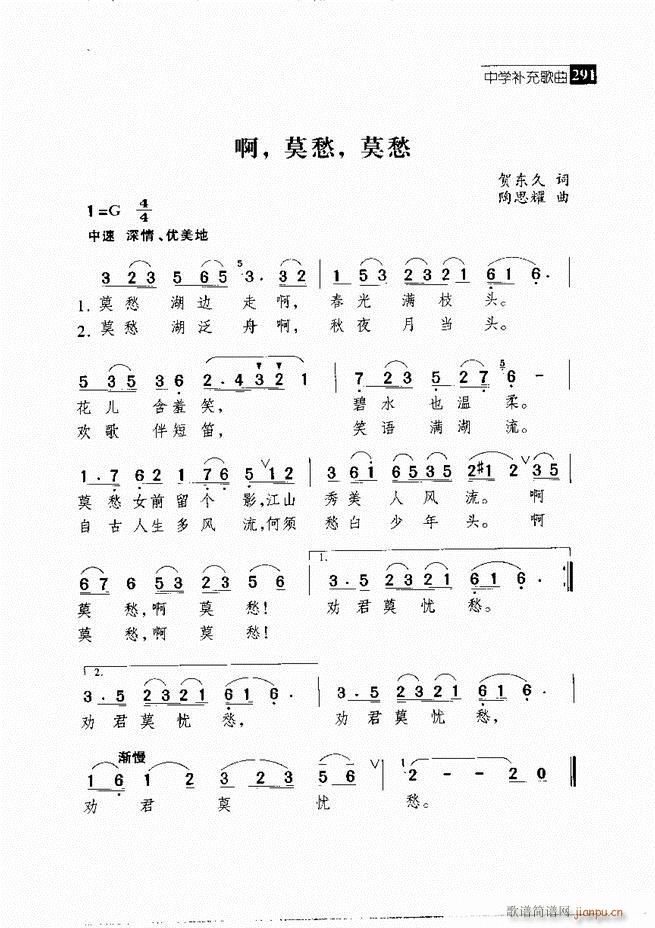 中学补充歌曲 291
啊，莫愁，莫愁
贺东久 词
陶思耀 曲
1=G 4/4
中速 深情、优美地
3 2 3 5 6 5 5 3· 3 2 | 1 5 3 2 3 2 1 6 1 6· |
1. 莫愁 湖边 走啊， 春光 满枝 头。
2. 莫愁 湖泛 舟啊， 秋夜 月当 头。
5 3 5 3 6 2· 4 3 2 1 | 7 2 3 5 2 7 5 6 - |
花儿 含羞 笑， 碧水 也温 柔。
欢歌 伴短 笛， 笑语 满湖 流。
1· 7 6 2 1· 7 6 5 1 2 | 3 6 1 6 5 3 5 2 #1 2 3 5
莫愁女前留个 影，江山 秀美 人风 流。 啊
自古人生多风 流，何须 愁白 少年 头。 啊
6 7 6 5 3 2 3 2 5 6 | 1. 3· 5 2 3 2 1 6 1 6· :||
莫 愁，啊 莫 愁！ 劝君莫忧 愁。
莫 愁，啊 莫 愁！
2. 3· 5 2 3 2 1 6 1 6· | 3· 5 2 3 2 1 6 1 6· |
劝君莫忧 愁， 劝君莫忧 愁，
渐慢
1 6 1 2 3 2 3 3 5 6 | 1 2 - - 2 0 ||
劝 君 莫 忧 愁。
歌谱简谱网 jianpu.cn